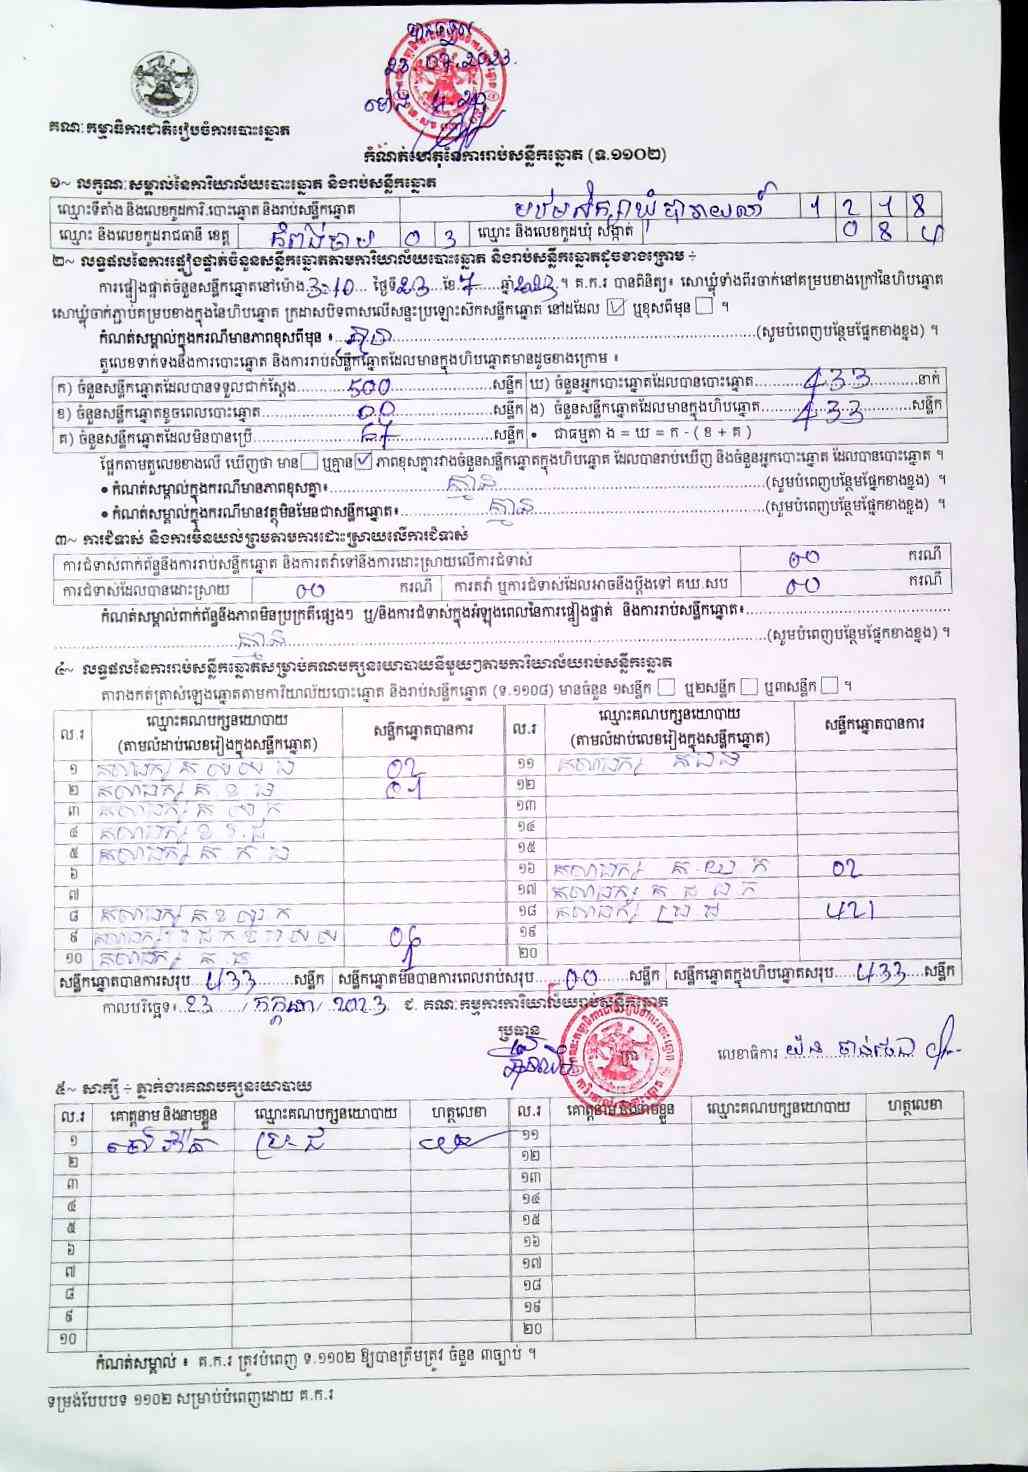 23.07.2023.
គណៈកម្មាធិការជាតិរៀបចំការបោះឆ្នោត
កំណត់ហេតុនៃការរាប់សន្លឹកឆ្នោត (ទ.១១០២)
១~ លក្ខណៈសម្គាល់នៃការិយាល័យបោះឆ្នោត និងរាប់សន្លឹកឆ្នោត
ឈ្មោះទីតាំង និងលេខកូដការិ.បោះឆ្នោត និងរាប់សន្លឹកឆ្នោត 1 2 1 8
ឈ្មោះ និងលេខកូដរាជធានី ខេត្ត កំពង់ចាម 0 3 ឈ្មោះ និងលេខកូដឃុំ សង្កាត់ 0 8
២~ លទ្ធផលនៃការផ្ទៀងផ្ទាត់ចំនួនសន្លឹកឆ្នោតតាមការិយាល័យបោះឆ្នោត និងរាប់សន្លឹកឆ្នោតដូចខាងក្រោម ÷
ការផ្ទៀងផ្ទាត់ចំនួនសន្លឹកឆ្នោតនៅម៉ោង 3:10 ថ្ងៃទី 23 ខែ 7 ឆ្នាំ 2023 ។ គ.ក.រ បានពិនិត្យ៖ សោឃ្លុំទាំងពីរចាក់នៅគម្របខាងក្រៅនៃហិបឆ្នោត
សោឃ្លុំចាក់ភ្ជាប់គម្របខាងក្នុងនៃហិបឆ្នោត ក្រដាសបិទពាសលើសន្ទះប្រឡោះស៊កសន្លឹកឆ្នោត នៅដដែល ☑ ឬខុសពីមុន ☐ ។
កំណត់សម្គាល់ក្នុងករណីមានភាពខុសពីមុន ៖ គ្មាន (សូមបំពេញបន្ថែមផ្នែកខាងខ្នង) ។
តួលេខទាក់ទងនឹងការបោះឆ្នោត និងការរាប់សន្លឹកឆ្នោតដែលមានក្នុងហិបឆ្នោតមានដូចខាងក្រោម ៖
ក) ចំនួនសន្លឹកឆ្នោតដែលបានទទួលជាក់ស្តែង 500 សន្លឹក ឃ) ចំនួនអ្នកបោះឆ្នោតដែលបានបោះឆ្នោត 433 នាក់
ខ) ចំនួនសន្លឹកឆ្នោតខូចពេលបោះឆ្នោត 00 សន្លឹក ង) ចំនួនសន្លឹកឆ្នោតដែលមានក្នុងហិបឆ្នោត 433 សន្លឹក
គ) ចំនួនសន្លឹកឆ្នោតដែលមិនបានប្រើ 67 សន្លឹក • ជាធម្មតា ង = ឃ = ក - ( ខ + គ )
ផ្អែកតាមតួលេខខាងលើ ឃើញថា មាន ☐ ឬគ្មាន ☑ ភាពខុសគ្នារវាងចំនួនសន្លឹកឆ្នោតក្នុងហិបឆ្នោត ដែលបានរាប់ឃើញ និងចំនួនអ្នកបោះឆ្នោត ដែលបានបោះឆ្នោត ។
• កំណត់សម្គាល់ក្នុងករណីមានភាពខុសគ្នា៖ គ្មាន (សូមបំពេញបន្ថែមផ្នែកខាងខ្នង) ។
• កំណត់សម្គាល់ក្នុងករណីមានវត្ថុមិនមែនជាសន្លឹកឆ្នោត៖ គ្មាន (សូមបំពេញបន្ថែមផ្នែកខាងខ្នង) ។
៣~ ការជំទាស់ និងការមិនយល់ព្រមតាមការដោះស្រាយលើការជំទាស់
ការជំទាស់ពាក់ព័ន្ធនឹងការរាប់សន្លឹកឆ្នោត និងការតវ៉ាទៅនឹងការដោះស្រាយលើការជំទាស់ 00 ករណី
ការជំទាស់ដែលបានដោះស្រាយ 00 ករណី ការតវ៉ា ឬការជំទាស់ដែលអាចនឹងប្តឹងទៅ គឃ.សប 00 ករណី
កំណត់សម្គាល់ពាក់ព័ន្ធនឹងភាពមិនប្រក្រតីផ្សេងៗ ឬ/និងការជំទាស់ក្នុងអំឡុងពេលនៃការផ្ទៀងផ្ទាត់ និងការរាប់សន្លឹកឆ្នោត៖
គ្មាន (សូមបំពេញបន្ថែមផ្នែកខាងខ្នង) ។
៤~ លទ្ធផលនៃការរាប់សន្លឹកឆ្នោតសម្រាប់គណបក្សនយោបាយនីមួយៗតាមការិយាល័យរាប់សន្លឹកឆ្នោត
តារាងកត់ត្រាសំឡេងឆ្នោតតាមការិយាល័យបោះឆ្នោត និងរាប់សន្លឹកឆ្នោត (ទ.១១០៨) មានចំនួន ១សន្លឹក ☐ ឬ២សន្លឹក ☐ ឬ៣សន្លឹក ☐ ។
ល.រ ឈ្មោះគណបក្សនយោបាយ (តាមលំដាប់លេខរៀងក្នុងសន្លឹកឆ្នោត) សន្លឹកឆ្នោតបានការ ល.រ ឈ្មោះគណបក្សនយោបាយ (តាមលំដាប់លេខរៀងក្នុងសន្លឹកឆ្នោត) សន្លឹកឆ្នោតបានការ
១ 02 ១១
២ ១២
៣ ១៣
៤ ១៤
៥ ១៥
៦ ១៦ 02
៧ ១៧
៨ ១៨ 421
៩ ១៩
១០ ២០
សន្លឹកឆ្នោតបានការសរុប 433 សន្លឹក សន្លឹកឆ្នោតមិនបានការពេលរាប់សរុប 00 សន្លឹក សន្លឹកឆ្នោតក្នុងហិបឆ្នោតសរុប 433 សន្លឹក
កាលបរិច្ឆេទ៖ 23 / កក្កដា / 2023 ជ. គណៈកម្មការការិយាល័យរាប់សន្លឹកឆ្នោត
ប្រធាន
លេខាធិការ
៥~ សាក្សី ÷ ភ្នាក់ងារគណបក្សនយោបាយ
ល.រ គោត្តនាម និងនាមខ្លួន ឈ្មោះគណបក្សនយោបាយ ហត្ថលេខា ល.រ គោត្តនាម និងនាមខ្លួន ឈ្មោះគណបក្សនយោបាយ ហត្ថលេខា
១ ១១
២ ១២
៣ ១៣
៤ ១៤
៥ ១៥
៦ ១៦
៧ ១៧
៨ ១៨
៩ ១៩
១០ ២០
កំណត់សម្គាល់ ៖ គ.ក.រ ត្រូវបំពេញ ទ.១១០២ ឱ្យបានត្រឹមត្រូវ ចំនួន ៣ច្បាប់ ។
ទម្រង់បែបបទ ១១០២ សម្រាប់បំពេញដោយ គ.ក.រ